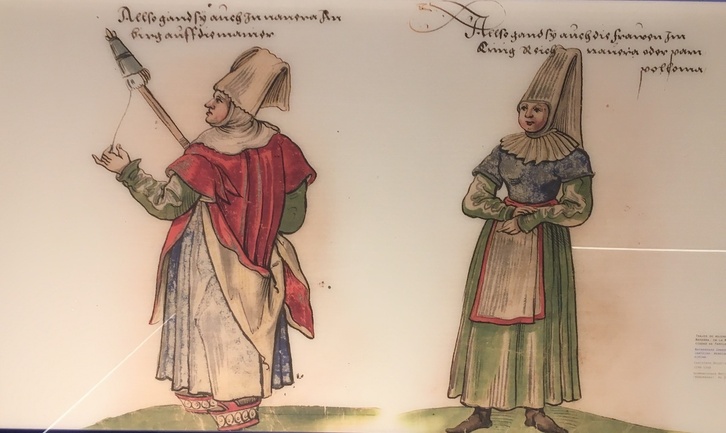 Allso gand sy auch In nauera In
birg auff die manier
Allso gand sy auch die frawen Im
Künig Reich nauera oder pam
polloma